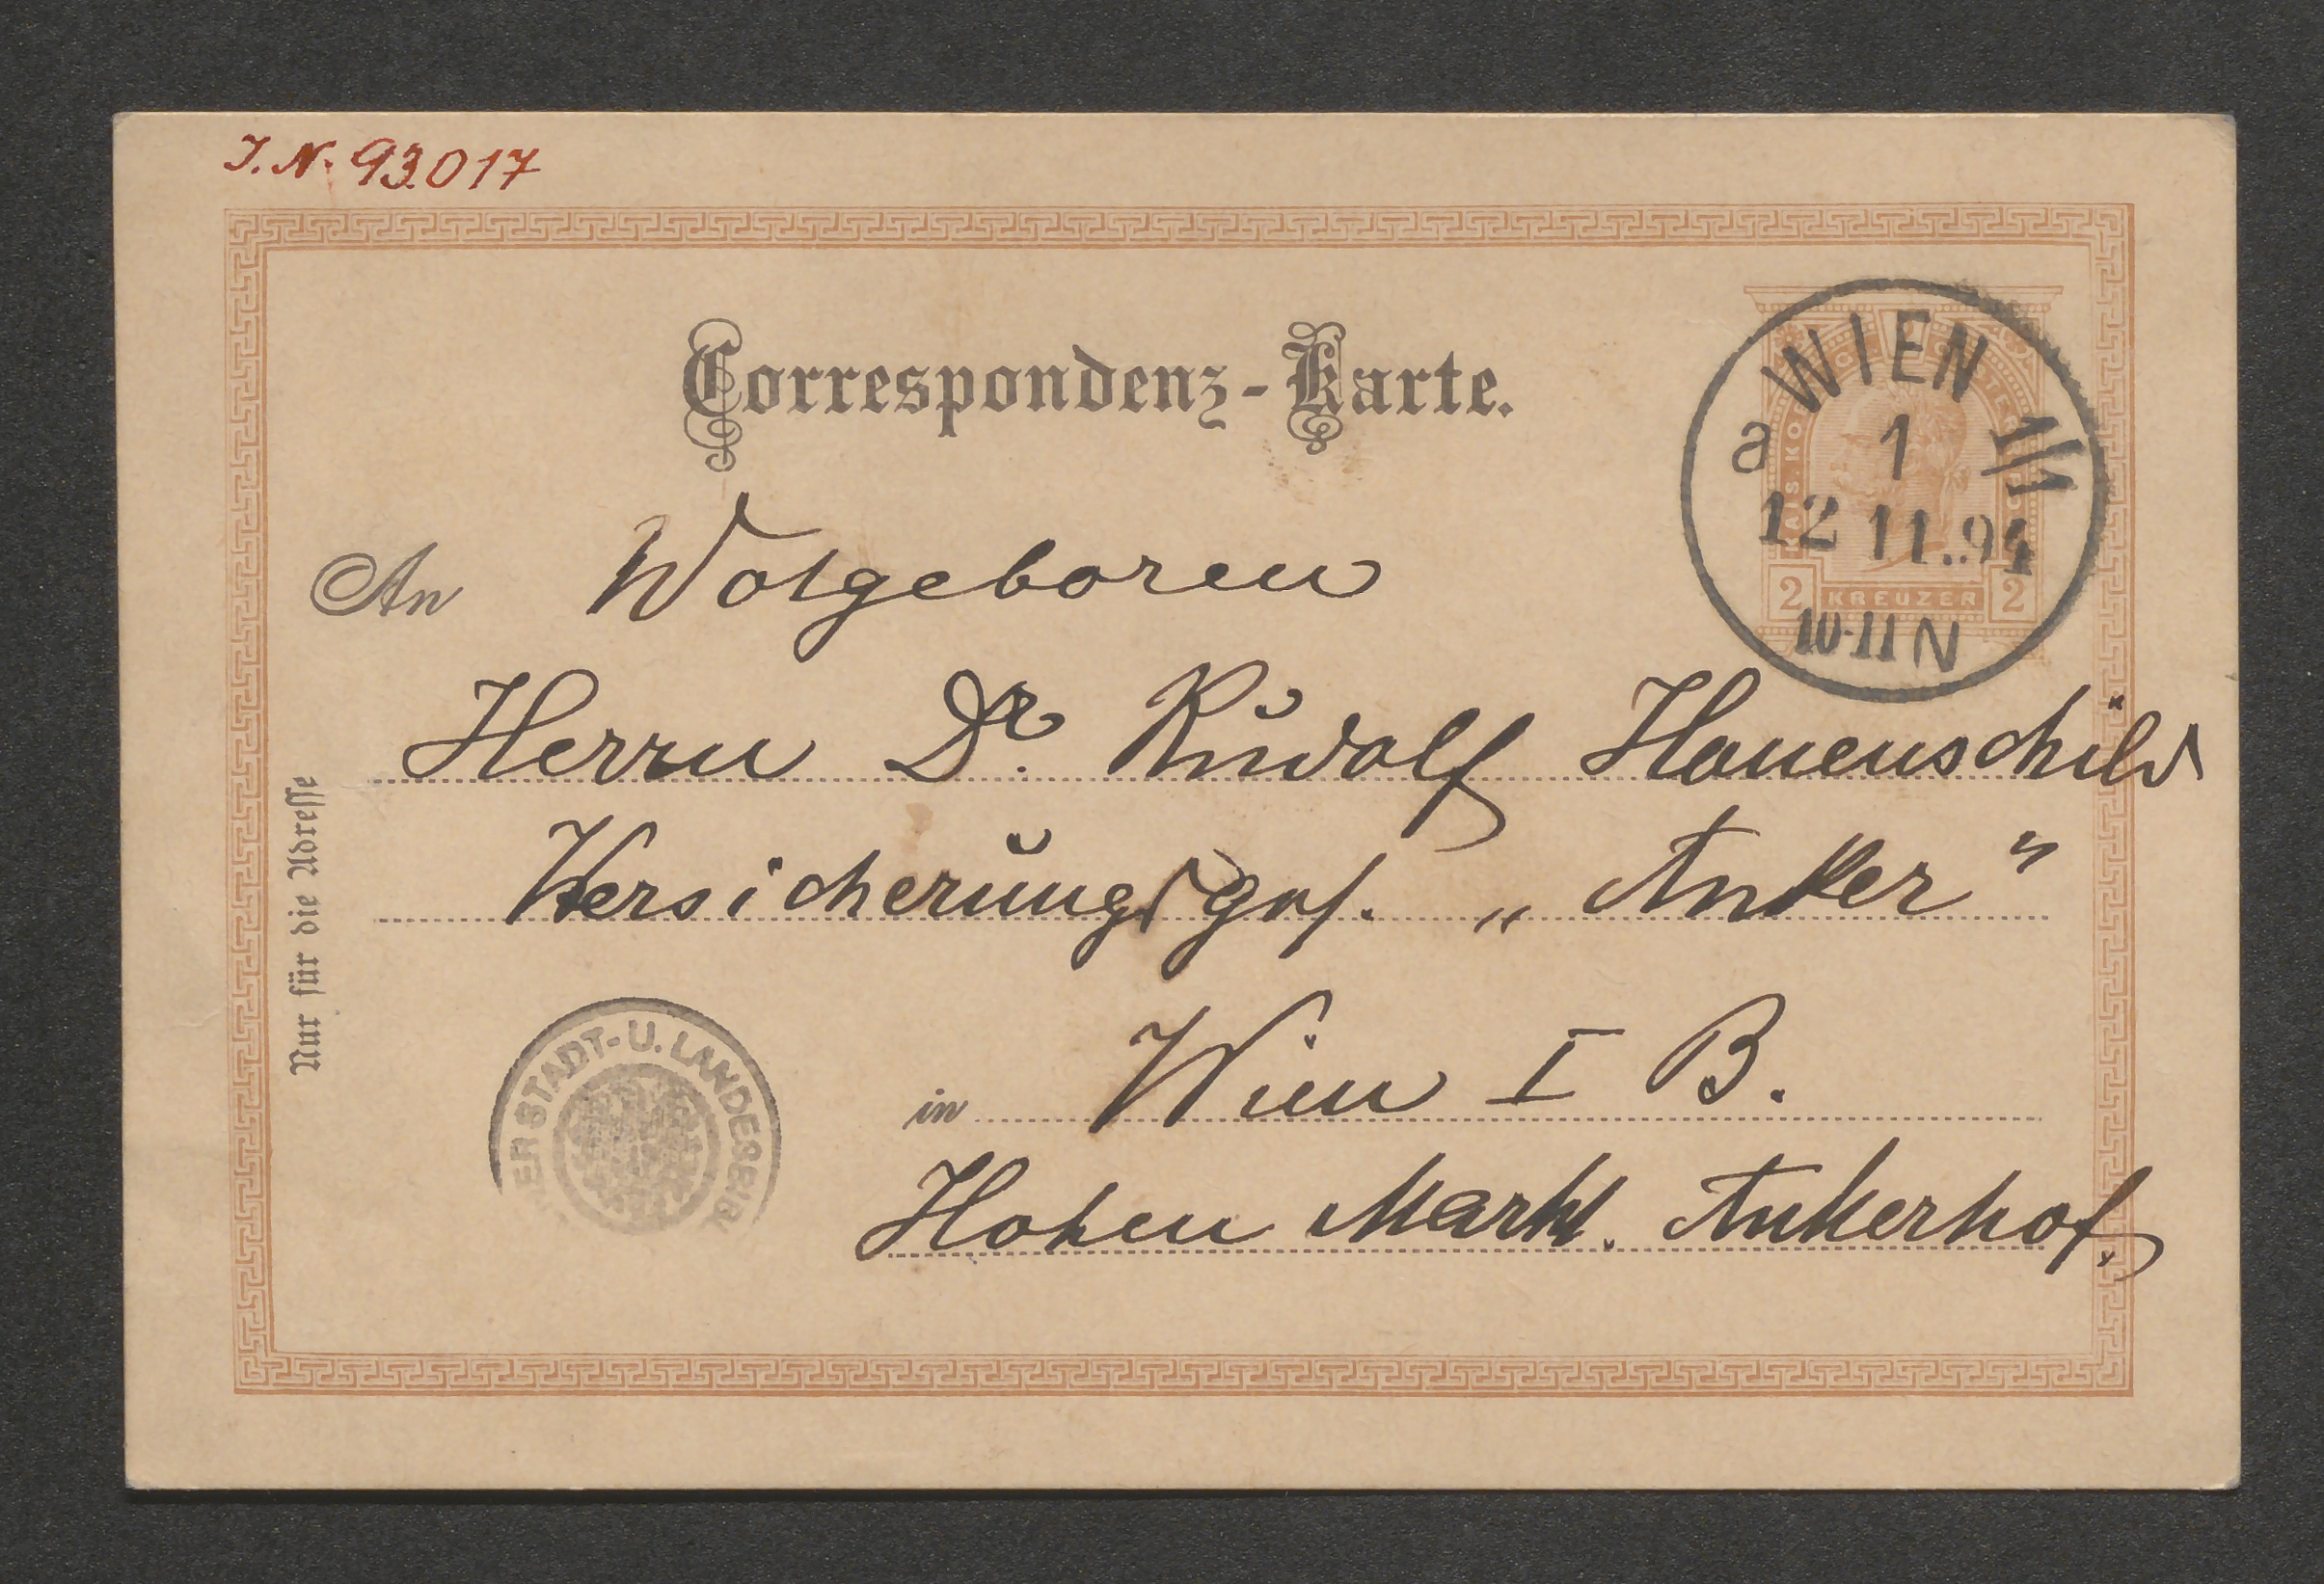 J. N. 93.017
Correspondenz-Karte.
WIEN
a 1 1/1
12 11..94
10-11 N
2 KREUZER 2
An Wolgeboren
Herrn Dr. Rudolf Hauenschild
Versicherungsges. „Anker"
in Wien I B.
Hohen Markt. Ankerhof.
Nur für die Adresse
ER STADT- U. LANDESBIB